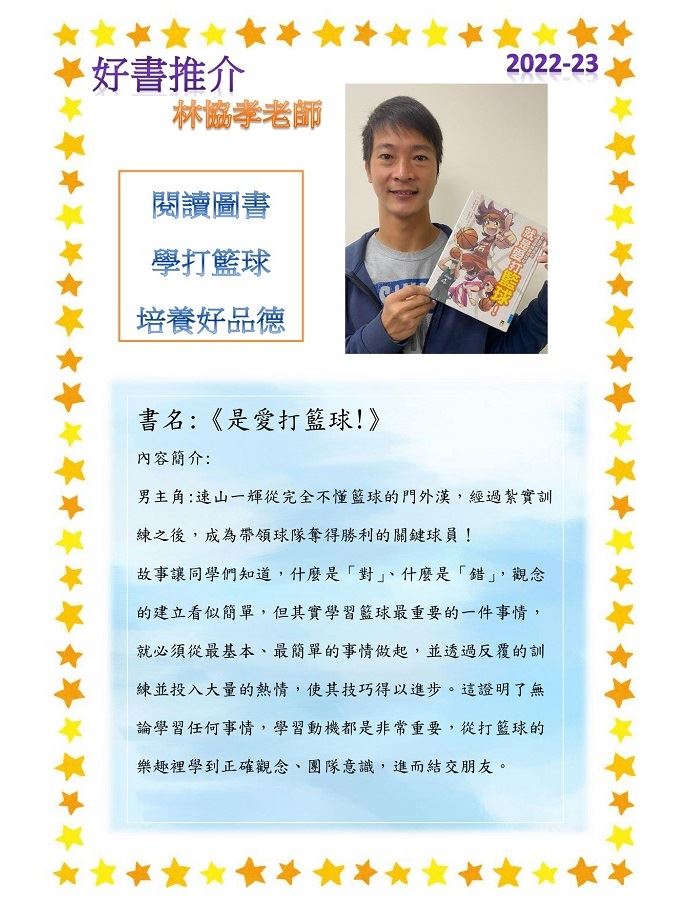 2022-23
好書推介
林協孝老師
閱讀圖書
學打籃球
培養好品德
就是愛打籃球!
書名:《是愛打籃球!》
內容簡介:
男主角:速山一輝從完全不懂籃球的門外漢，經過紮實訓
練之後，成為帶領球隊奪得勝利的關鍵球員！
故事讓同學們知道，什麼是「對」、什麼是「錯」，觀念
的建立看似簡單，但其實學習籃球最重要的一件事情，
就必須從最基本、最簡單的事情做起，並透過反覆的訓
練並投入大量的熱情，使其技巧得以進步。這證明了無
論學習任何事情，學習動機都是非常重要，從打籃球的
樂趣裡學到正確觀念、團隊意識，進而結交朋友。